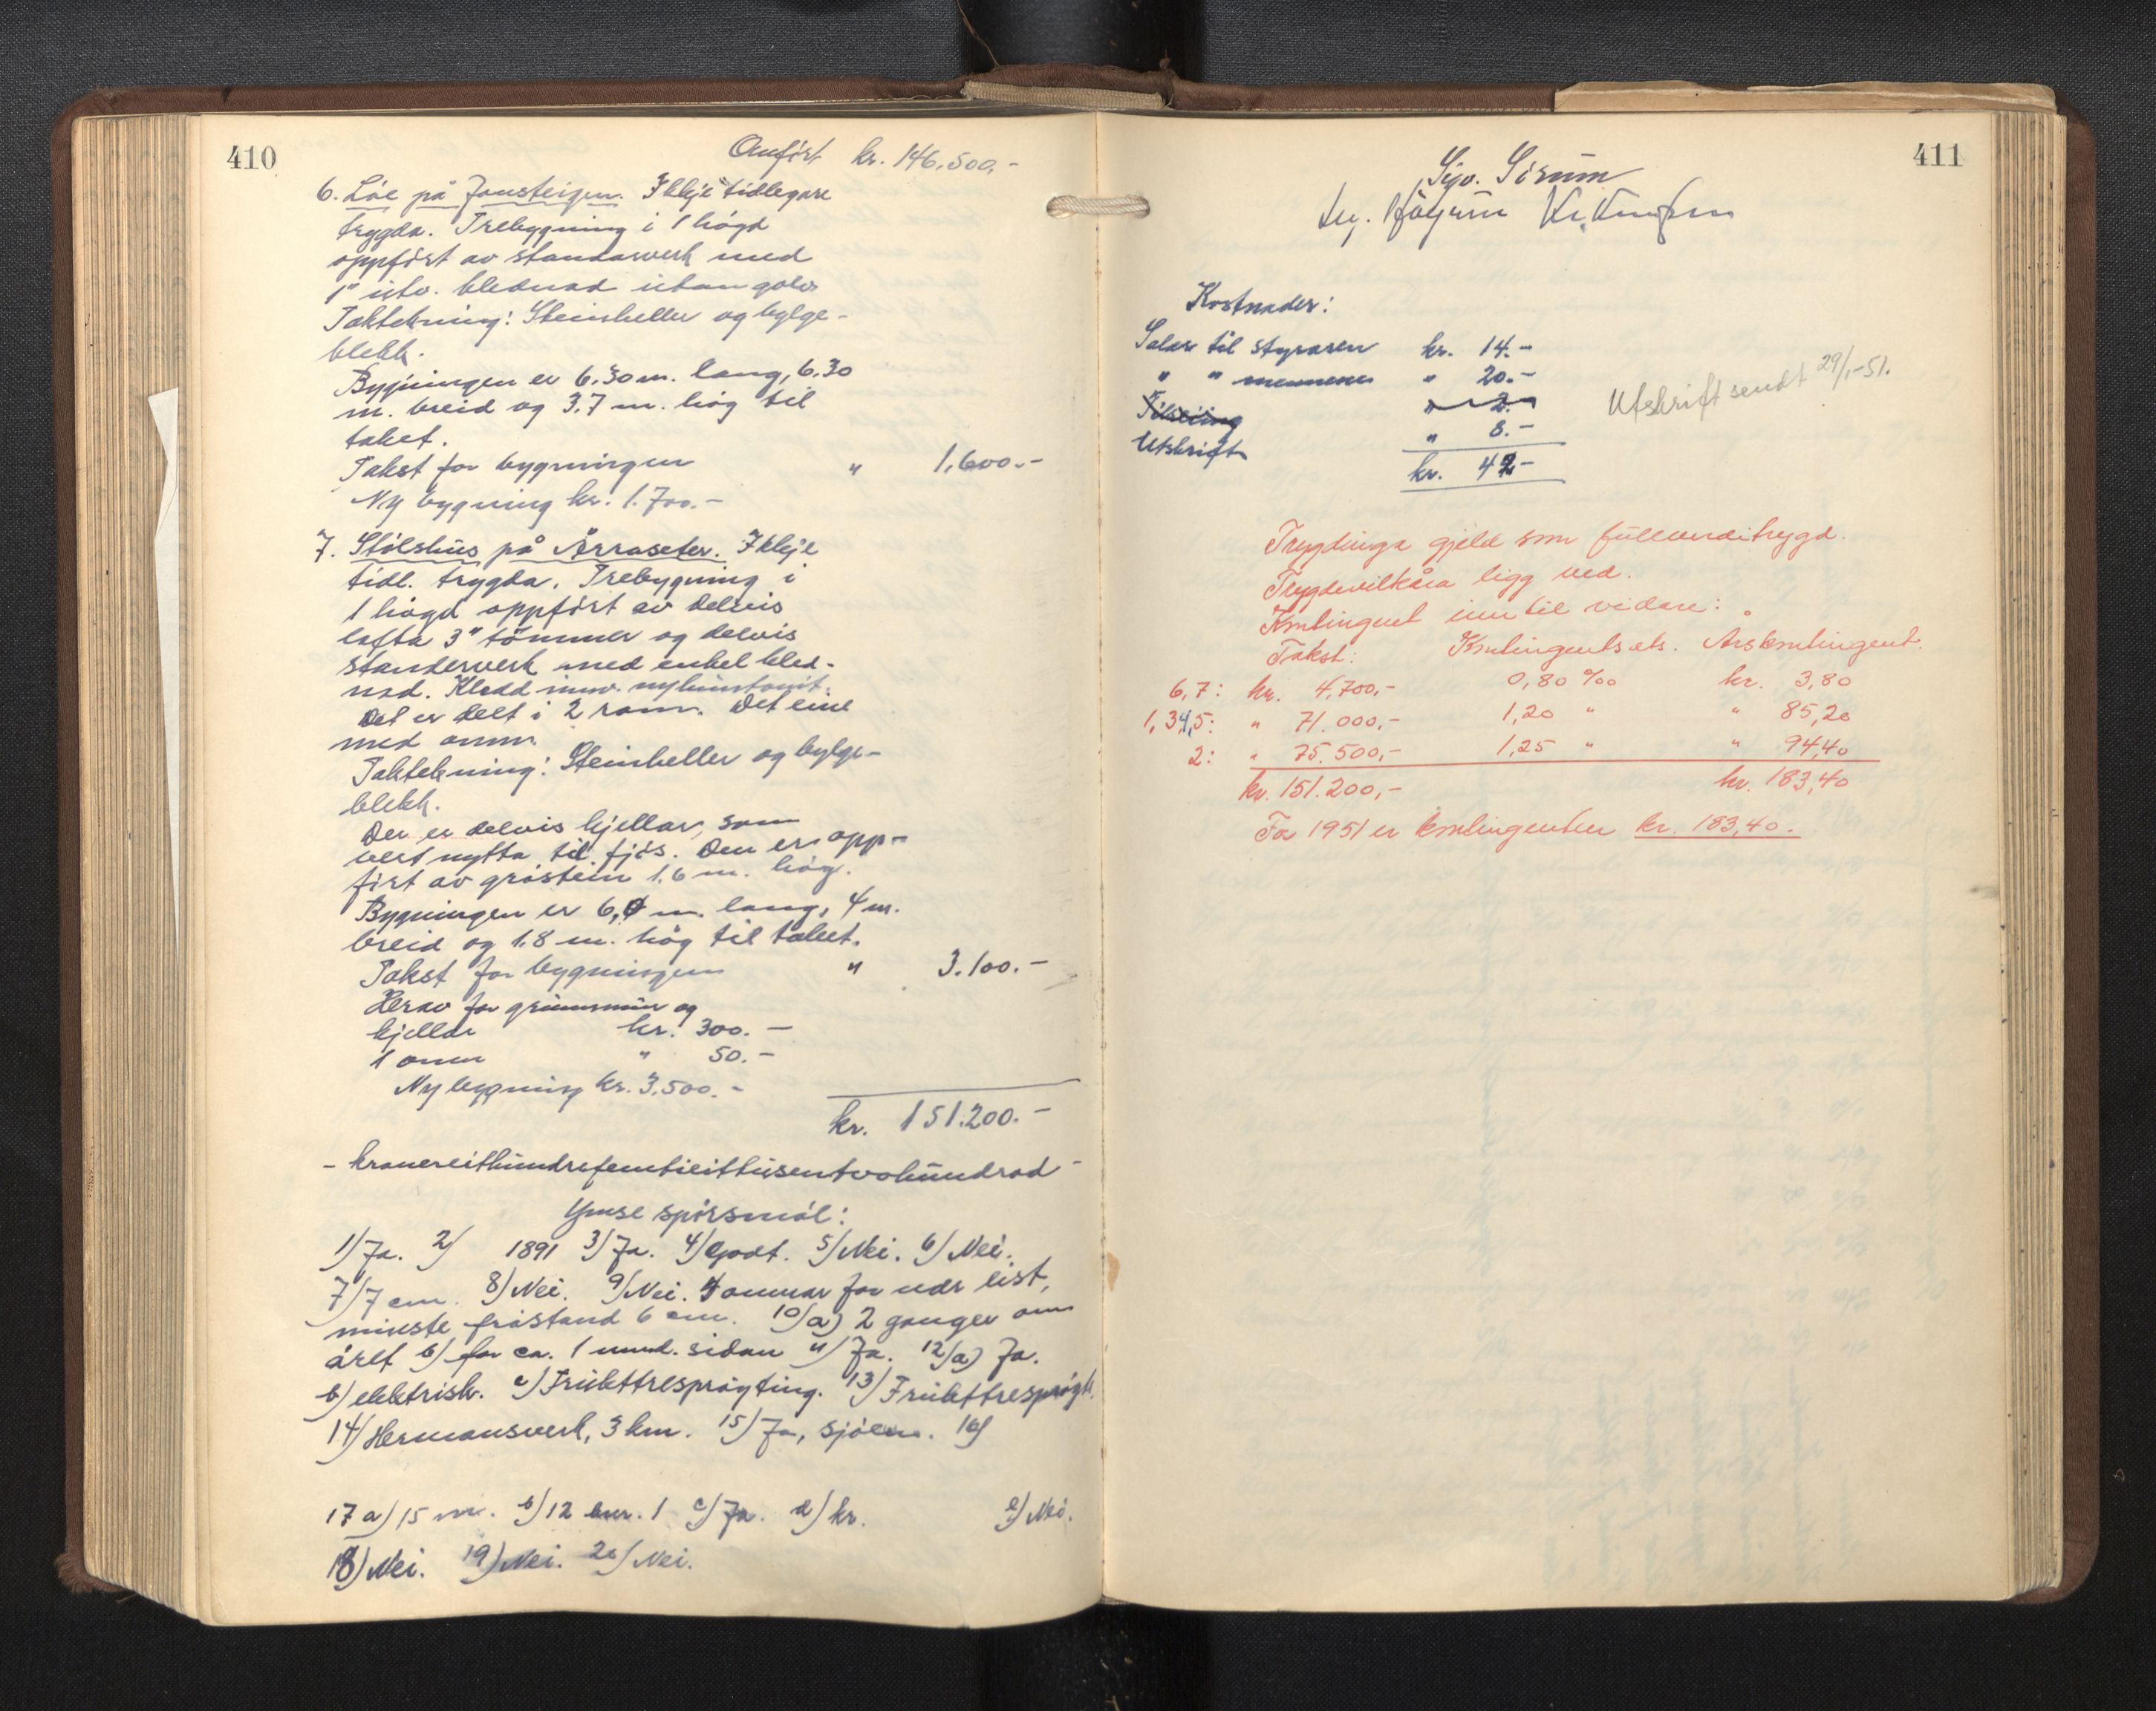 410
Omført kr. 146.500,-
6. Löe på Jonsteigen. Ikkje tidlegare
trygda. Trebygning i 1 högd
oppfört av standarverk med
1" utv. klednad utan golv.
Taktekning: Steinheller og bylgje-
blekk.
Bygningen er 6,30 m. lang, 6,30
m. breid og 3,7 m. hög til
taket.
Takst for bygningen " 1.600.-
Ny bygning kr. 1.700.-
7. Stölshus på Årraseter. Ikkje
tidl. trygda. Trebygning i
1 högd oppfört av delvis
lafta 3" tömmer og delvis
standerverk med enkel kled-
nad. Kledd innv.
Det er delt i 2 rom. Det eine
med omn.
Taktekning: Steinheller og bylgje-
blekk.
Der er delvis kjellar, som
vert nytta til fjös. Den er opp-
fört av gråstein 1,6 m. hög.
Bygningen er 6,0 m. lang, 4 m.
breid og 1,8 m. hög til taket.
Takst for bygningen " 3.100.-
Herav for grunnmur og
kjellar kr. 300.-
1 omn " 50.-
Ny bygning kr. 3.500.-
kr. 151.200.-
- kronereitthundrefemtieittusentvohundrad -
Ymse spörsmål:
1) Ja. 2) 1891 3) Ja. 4) Godt. 5) Nei. 6) Nei.
7) 7 cm. 8) Nei. 9) Nei. 4 omnar for nedr list,
minste fråstand 6 cm. 10) a) 2 ganger om
året b) for ca. 1 mnd. sidan 11) Ja. 12) a) Ja.
b) elektrisk. c) Frukttresprøyting. 13) Frukttresprøyt.
14) Hermansverk, 3 km. 15) Ja, sjöen. 16)
17 a) 15 m. b) 12 cm. 1 c) Ja. d) kr. e) Nei.
18) Nei. 19) Nei. 20) Nei.
411
Sjov. Sörum
Kostnader:
Salær til styraren kr. 14.-
" " mennene " 20.-
Tilseiing " 2.-
Utskrift " 8.-
kr. 42.-
Utskrift sendt 29/1-51.
Trygdinga gjeld som fullverditrygd.
Trygdevilkåra ligg ved.
Kontingent inntil vidare:
Takst: Kontingentsats. Årskontingent.
6,7: kr. 4.700,- 0,80 ‰ kr. 3,80
1,3,4,5: " 71.000,- 1,20 " " 85,20
2: " 75.500,- 1,25 " " 94,40
kr. 151.200,- kr. 183,40
For 1951 er kontingenten kr. 183,40.